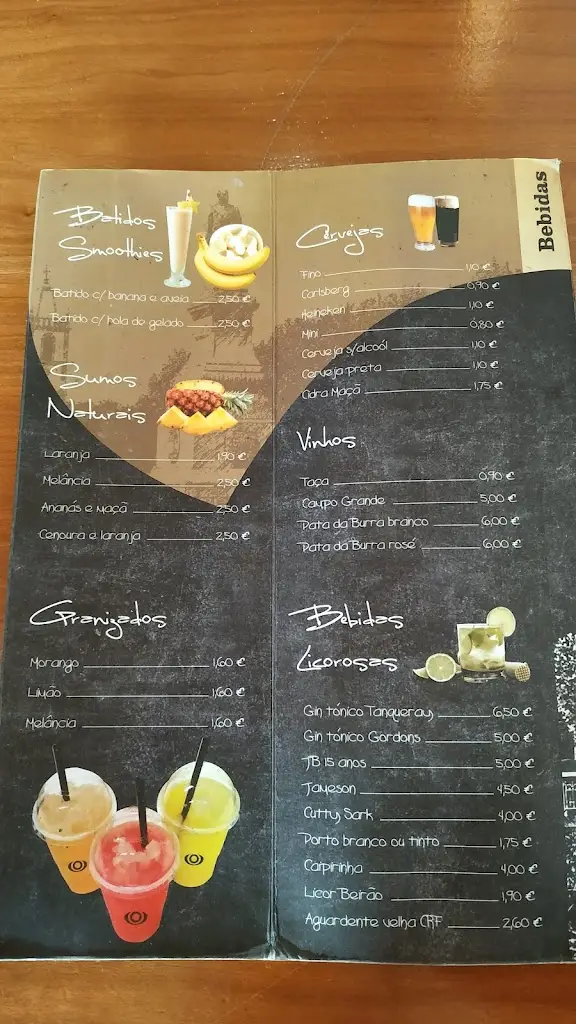 Bebidas
Batidos
Smoothies
Batido c/ banana e aveia 2,50 €
Batido c/ bola de gelado 2,50 €
Sumos
Naturais
Laranja 1,90 €
Melância 2,50 €
Ananás e Maçã 2,50 €
Cenoura e laranja 2,50 €
Granizados
Morango 1,60 €
Limão 1,60 €
Melância 1,60 €
Cervejas
Fino 1,10 €
Carlsberg 0,90 €
Heineken 1,10 €
Mini 0,80 €
Cerveja s/alcoól 1,10 €
Cerveja preta 1,10 €
Cidra Maçã 1,75 €
Vinhos
Taça 0,90 €
Campo Grande 5,00 €
Pata da Burra branco 6,00 €
Pata da Burra rosé 6,00 €
Bebidas
Licorosas
Gin tónico Tanqueray 6,50 €
Gin tónico Gordons 5,00 €
JB 15 anos 5,00 €
Jameson 4,50 €
Cutty Sark 4,00 €
Porto branco ou tinto 1,75 €
Caipirinha 4,00 €
Licor Beirão 1,90 €
Aguardente velha CRF 2,60 €